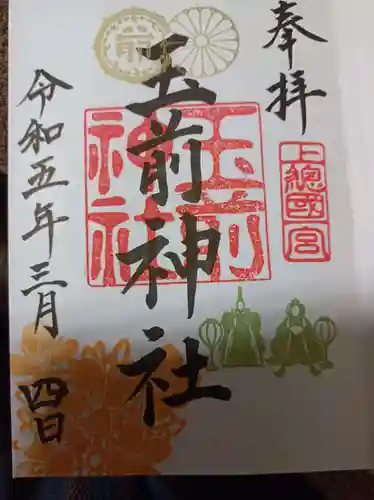 奉拝
上總國一宮
玉前神社
玉前神社
前
令和五年三月四日